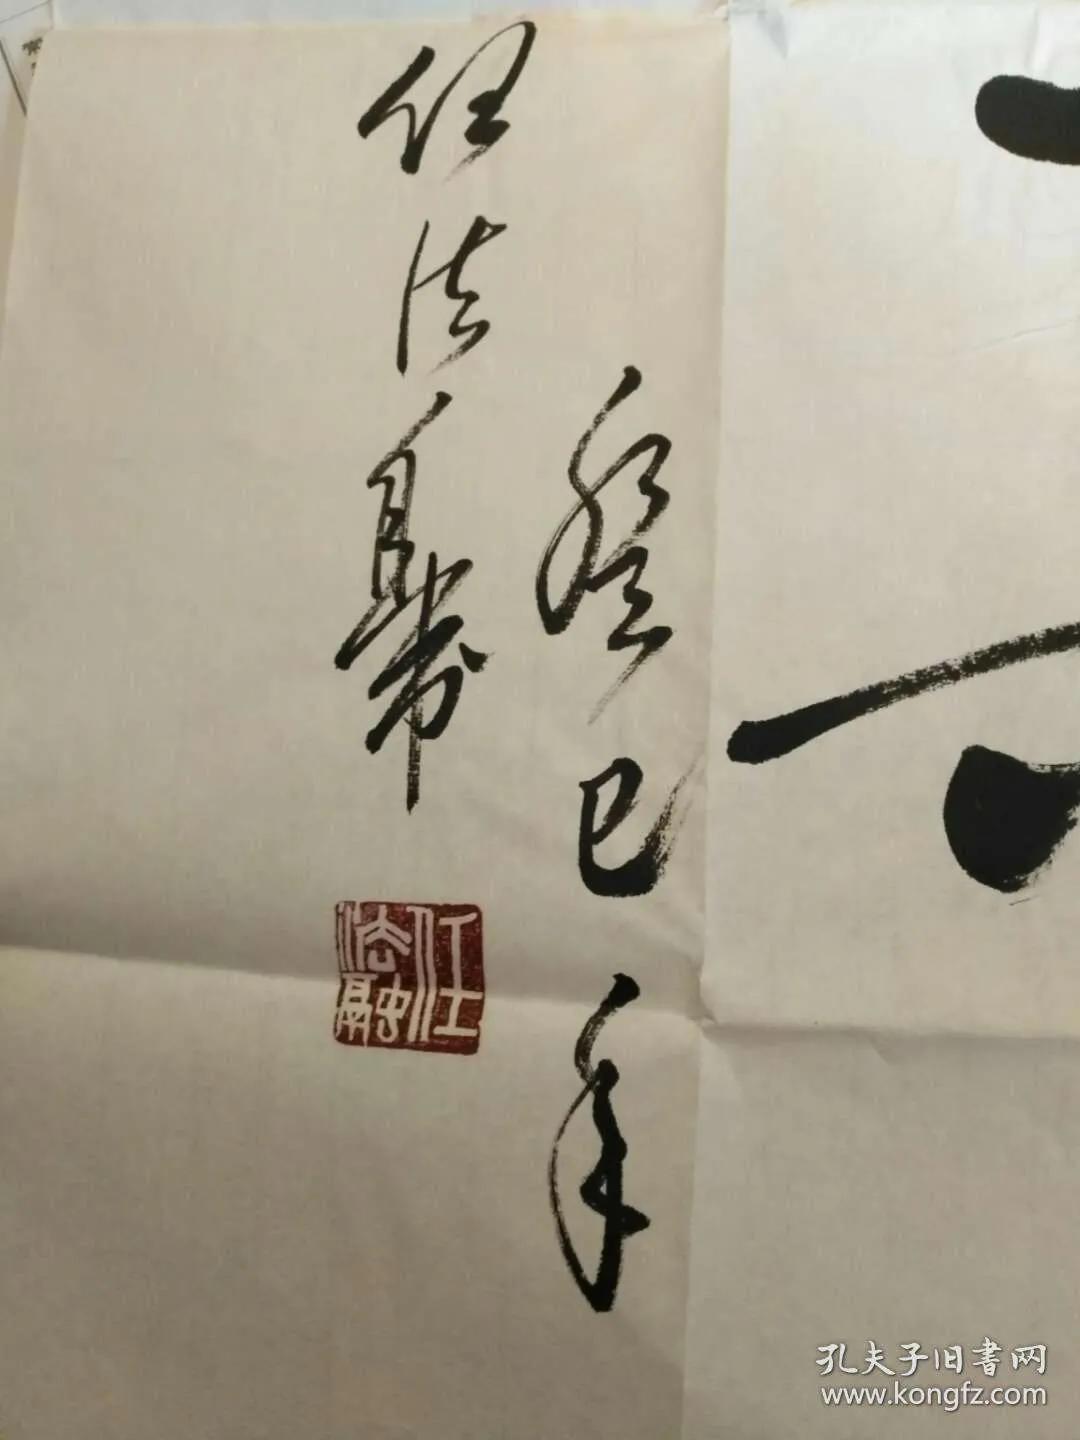 癸巳年
任法融
任法融
孔夫子旧書网
www.kongfz.com